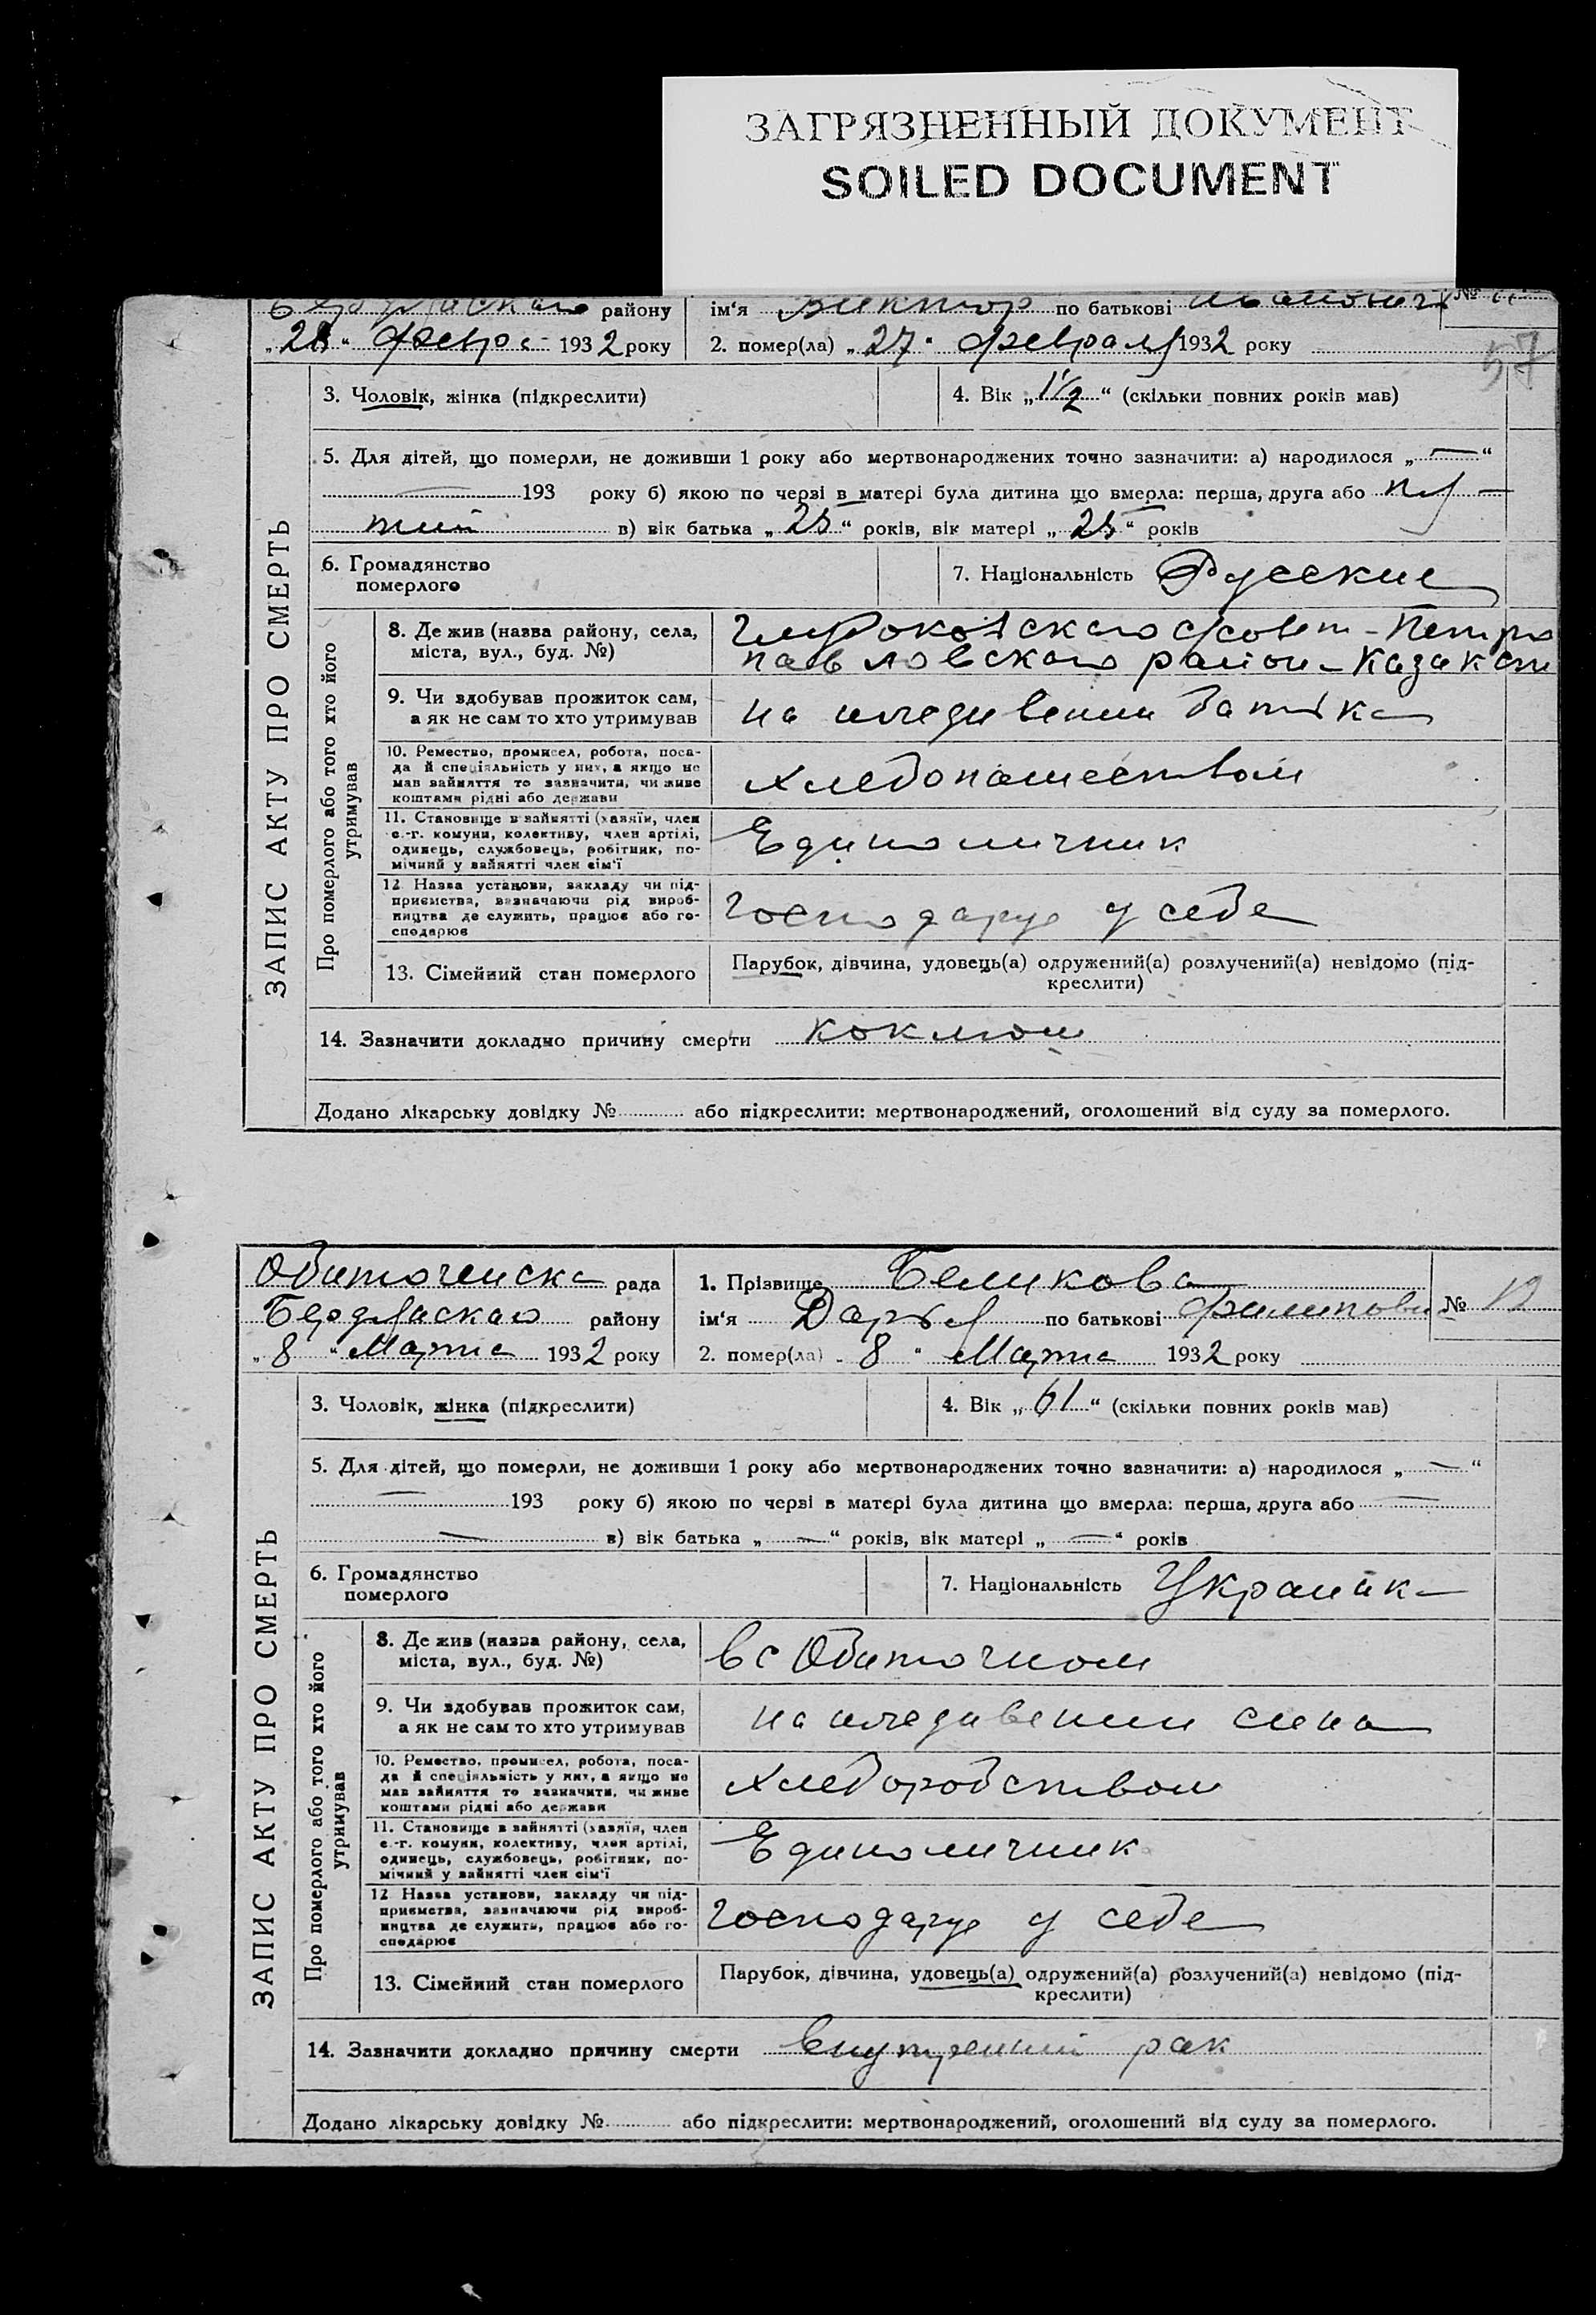 ЗАГРЯЗНЕННЫЙ ДОКУМЕНТ
SOILED DOCUMENT
району ім‘я Виктор по батькові Иванович №
„28“ Февра- 1932 року 2. помер(ла) „27“ февраля 1932 року
57
ЗАПИС АКТУ ПРО СМЕРТЬ
3. Чоловік, жінка (підкреслити) 4. Вік „1½“ (скільки повних років мав)
5. Для дітей, що померли, не доживши 1 року або мертвонароджених точно зазначити: а) народилося „—“
— 193 року б) якою по черзі в матері була дитина що вмерла: перша, друга або пя-
тий в) вік батька „25“ років, вік матері „25“ років
6. Громадянство
померлого
7. Національність Русские
Про померлого або того хто його
утримував
8. Де жив (назва району, села,
міста, вул., буд. №)
совет - Петро
павловского район - Казакст
9. Чи здобував прожиток сам,
а як не сам то хто утримував
на иждевении батька
10. Ремество, промисел, робота, поса-
да й спеціяльність у них, а якщо не
мав зайняття то зазначити, чи живе
коштами рідні або держави
хлебопашеством
11. Становище в зайнятті (хазяїн, член
с.-г. комуни, колективу, член артілі,
одинець, службовець, робітник, по-
мічний у зайнятті член сім‘ї
Единоличник
12. Назва установи, закладу чи під-
приємства, вазначаючи рід вироб-
ництва де служить, працює або го-
сподарює
господарує у себе
13. Сімейний стан померлого
Парубок, дівчина, удовець(а) одружений(а) розлучений(а) невідомо (під-
креслити)
14. Зазначити докладно причину смерти коклюш
Додано лікарську довідку № або підкреслити: мертвонароджений, оголошений від суду за померлого.
Обиточенска рада 1. Прізвище Беликова
Бердянскаго району ім‘я Дарья по батькові Филиповн № 12
„8“ Марта 1932 року 2. помер(ла) „8“ Марта 1932 року
ЗАПИС АКТУ ПРО СМЕРТЬ
3. Чоловік, жінка (підкреслити) 4. Вік „61“ (скільки повних років мав)
5. Для дітей, що померли, не доживши 1 року або мертвонароджених точно зазначити: а) народилося „—“
— 193 року б) якою по черзі в матері була дитина що вмерла: перша, друга або —
— в) вік батька „—“ років, вік матері „—“ років
6. Громадянство
померлого
7. Національність Украинк-
Про померлого або того хто його
утримував
8. Де жив (назва району, села,
міста, вул., буд. №)
в с Обиточном
9. Чи здобував прожиток сам,
а як не сам то хто утримував
на иждевении сина
10. Ремество, промисел, робота, поса-
да й спеціяльність у них, а якщо не
мав зайняття то зазначити, чи живе
коштами рідні або держави
хлеборобством
11. Становище в зайнятті (хазяїн, член
с.-г. комуни, колективу, член артілі,
одинець, службовець, робітник, по-
мічний у зайнятті член сім‘ї
Единоличник
12. Назва установи, закладу чи під-
приємства, зазначаючи рід вироб-
ництва де служить, працює або го-
сподарює
господарує у себе
13. Сімейний стан померлого
Парубок, дівчина, удовець(а) одружений(а) розлучений(а) невідомо (під-
креслити)
14. Зазначити докладно причину смерти внутренний рак
Додано лікарську довідку № або підкреслити: мертвонароджений, оголошений від суду за померлого.